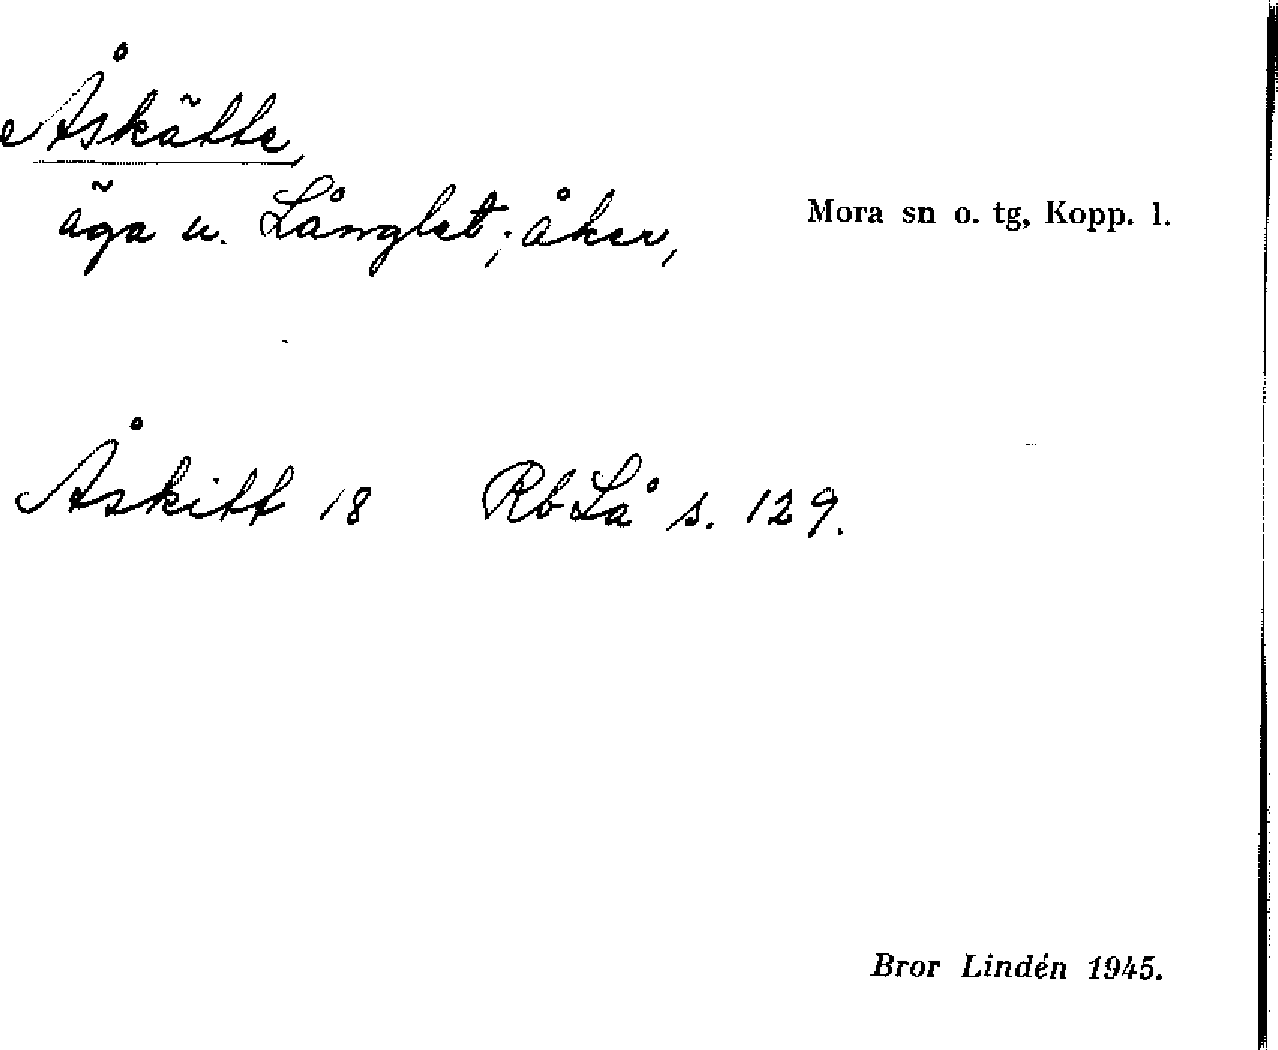 Åskätte,
äga u. Långlet; åker,
Mora sn o. tg, Kopp. l.
Åskitt 18 Rb Lå s. 129.
Bror Lindén 1945.